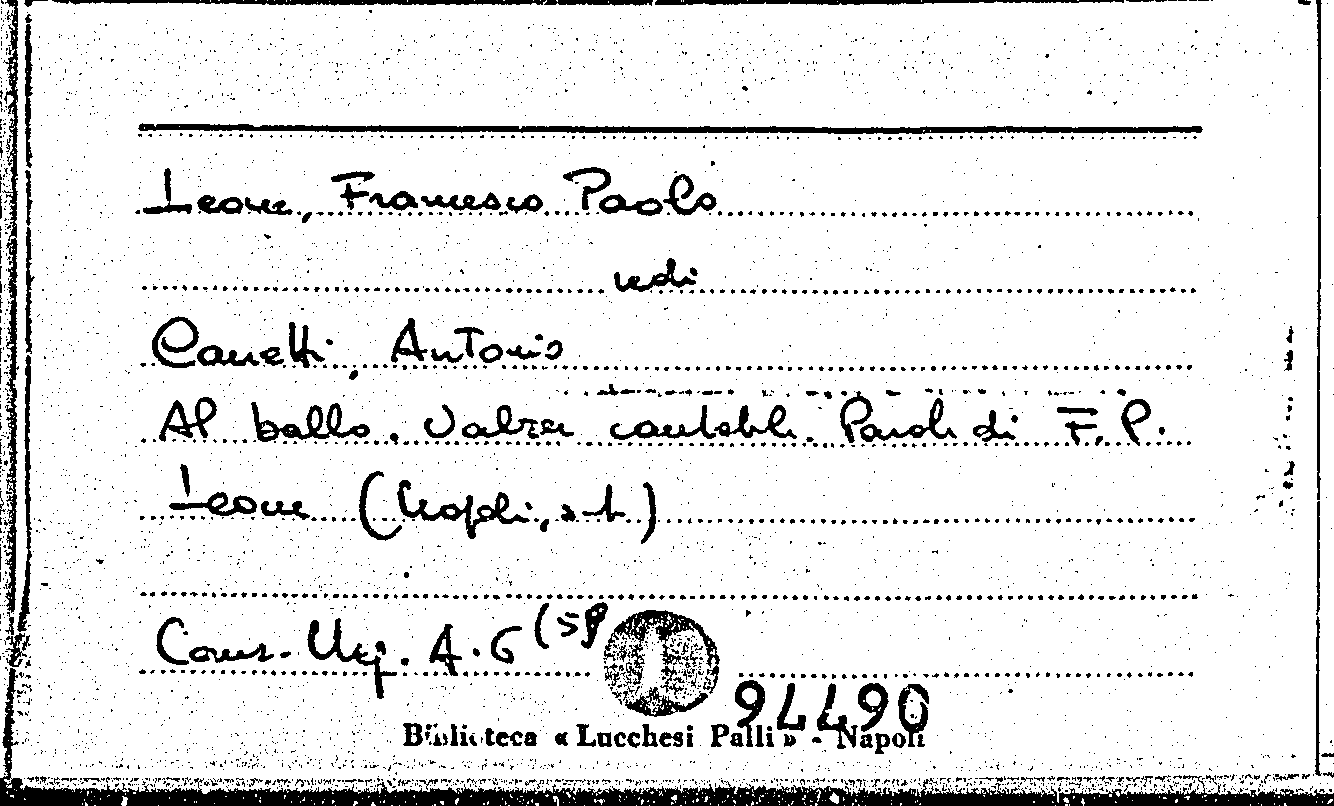 Leone, Francesco Paolo
vedi
Canetti, Antonio
Al ballo. Valzer cantabile. Parole di F. P.
Leone (Napoli, s.t.)
Com. Urg. A. 6 (59
94490
Biblioteca « Lucchesi Palli » - Napoli